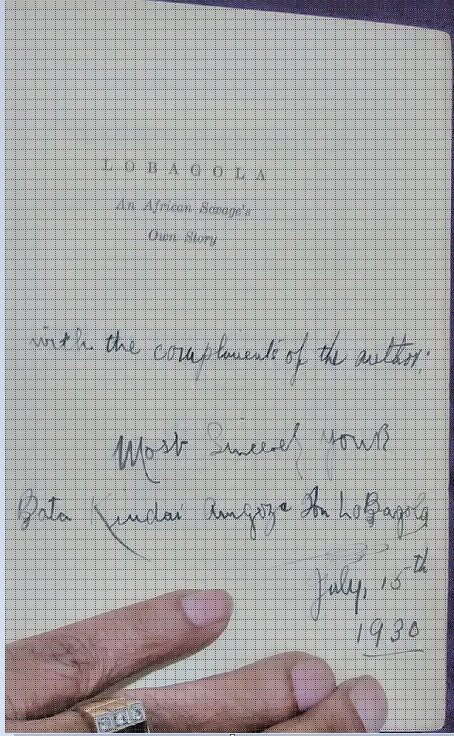 LOBAGOLA
An African Savage's
Own Story
with the compliments of the author:
Most Sincerely yours
Bata Kindai Amgoza Ibn LoBagola
July, 15th
1930